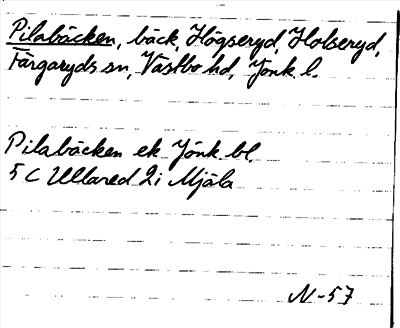 Pilabäcken, bäck, Högseryd, Holseryd,
Färgaryds sn, Västbo hd, Jönk. l.
Pilabäcken ek Jönk bl.
5 C Ullared 2i Mjäla
N-57